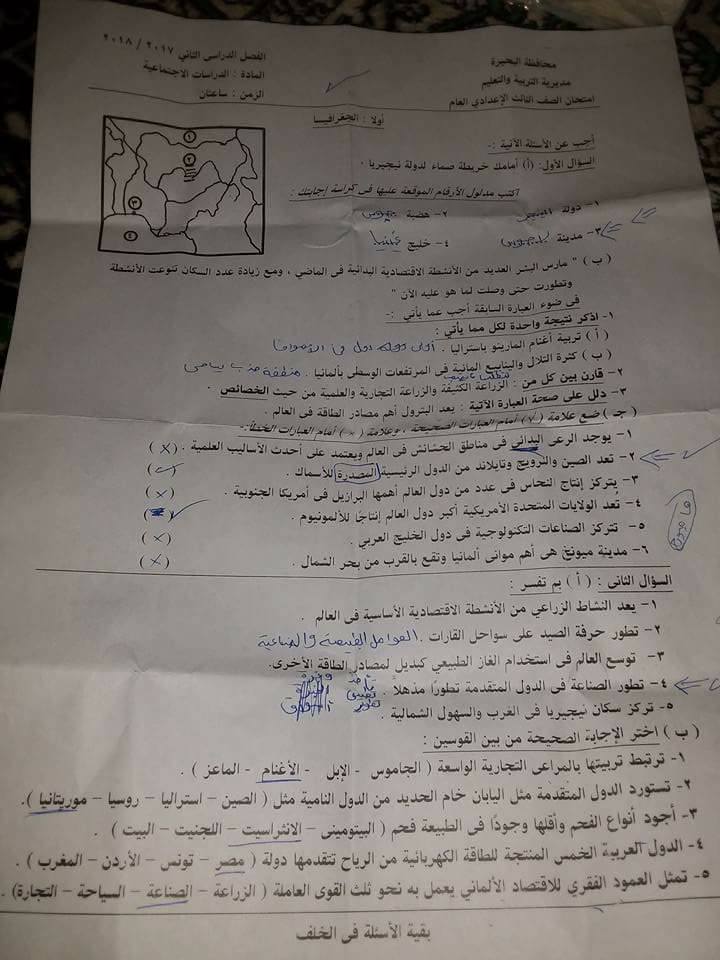 محافظة البحيرة
مديرية التربية والتعليم
امتحان الصف الثالث الإعدادي العام
الفصل الدراسى الثاني ٢٠١٧ / ٢٠١٨
المادة : الدراسات الاجتماعية
الزمن : ساعتان
أولا : الجغرافيا
أجب عن الأسئلة الآتية :-
السؤال الأول: (أ) أمامك خريطة صماء لدولة نيجيريا .
اكتب مدلول الأرقام الموقعة عليها فى كراسة إجابتك :
١- دولة النيجر ٢- هضبة جوس
٣- مدينة ٤- خليج غينيا
( ب ) " مارس البشر العديد من الأنشطة الاقتصادية البدائية فى الماضي ، ومع زيادة عدد السكان تنوعت الأنشطة
وتطورت حتى وصلت لما هو عليه الأن "
فى ضوء العبارة السابقة أجب عما يأتي :-
١- اذكر نتيجة واحدة لكل مما يأتي :
( أ ) تربية أغنام المارينو باستراليا .
( ب ) كثرة التلال والينابيع المائية فى المرتفعات الوسطى بألمانيا . منطقة جذب سياحى
٢- قارن بين كل من : الزراعة الكثيفة والزراعة التجارية والعلمية من حيث الخصائص .
٣- دلل على صحة العبارة الآتية : يعد البترول أهم مصادر الطاقة فى العالم .
( جـ ) ضع علامة (√) أمام العبارات الصحيحة ، وعلامة (×) أمام العبارات الخطأ:-
١- يوجد الرعى البدائى فى مناطق الحشائش فى العالم ويعتمد على أحدث الأساليب العلمية . (×)
٢- تعد الصين والنرويج وتايلاند من الدول الرئيسية المصدرة للأسماك . (✓)
٣- يتركز إنتاج النحاس فى عدد من دول العالم أهمها البرازيل فى أمريكا الجنوبية . (×)
٤- تعد الولايات المتحدة الأمريكية أكبر دول العالم إنتاجًا للألمونيوم .
٥- تتركز الصناعات التكنولوجية فى دول الخليج العربي . (×)
٦- مدينة ميونخ هى أهم موانى ألمانيا وتقع بالقرب من بحر الشمال . (×)
هامبورج
السؤال الثانى : ( أ ) بم تفسر :
١- يعد النشاط الزراعي من الأنشطة الاقتصادية الأساسية فى العالم .
٢- تطور حرفة الصيد على سواحل القارات . العوامل الطبيعية والصناعية
٣- توسع العالم فى استخدام الغاز الطبيعي كبديل لمصادر الطاقة الأخرى.
٤- تطور الصناعة فى الدول المتقدمة تطورًا مذهلاً .
٥- تركز سكان نيجيريا فى الغرب والسهول الشمالية .
( ب ) اختر الإجابة الصحيحة من بين القوسين :
١- ترتبط تربيتها بالمراعى التجارية الواسعة ( الجاموس - الإبل - الأغنام - الماعز ) .
٢- تستورد الدول المتقدمة مثل اليابان خام الحديد من الدول النامية مثل ( الصين – استراليا – روسيا – موريتانيا ).
٣- أجود أنواع الفحم وأقلها وجودًا فى الطبيعة فحم ( البيتومينى – الانثراسيت – اللجنيت – البيت ) .
٤- الدول العربية الخمس المنتجة للطاقة الكهربائية من الرياح تتقدمها دولة ( مصر – تونس – الأردن – المغرب ) .
٥- تمثل العمود الفقري للاقتصاد الألماني يعمل به نحو ثلث القوى العاملة ( الزراعة – الصناعة – السياحة – التجارة) .
بقية الأسئلة فى الخلف